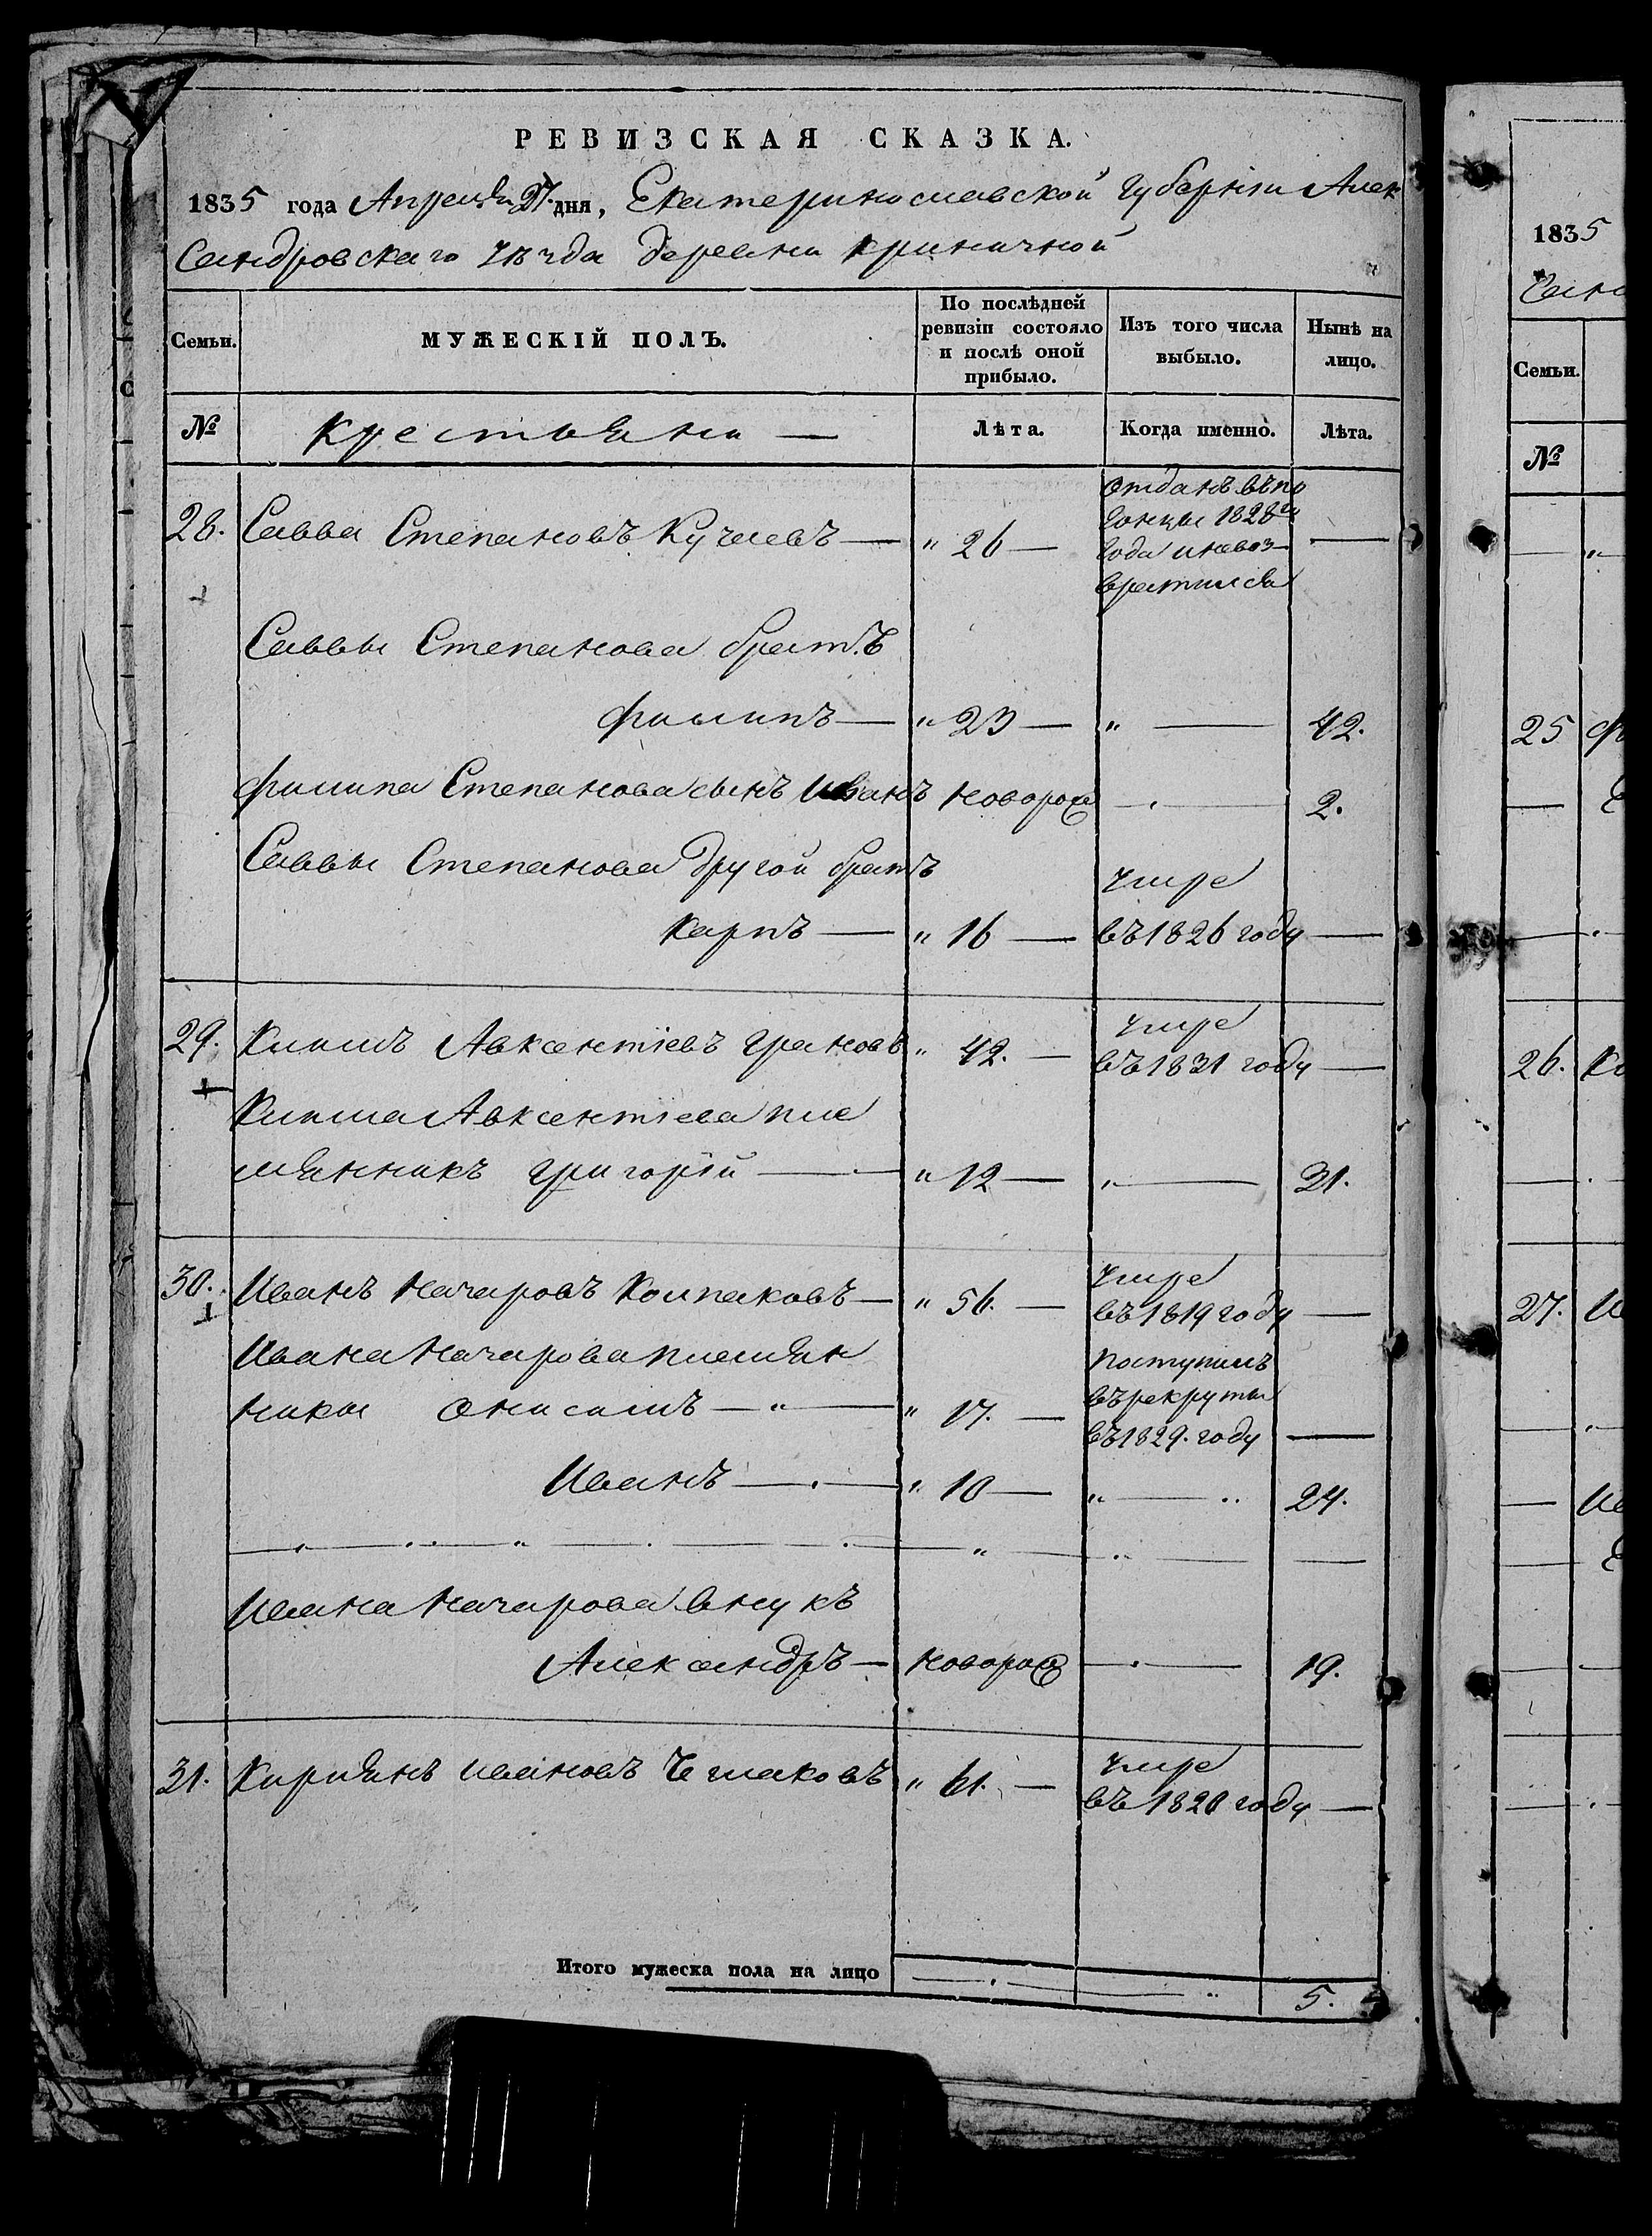 РЕВИЗСКАЯ СКАЗКА.
1835 года Апреля 27. дня, Екатеринославской Губерніи Алек
сандровскаго уѣзда деревни Криничной
Семьи. МУЖЕСКІЙ ПОЛЪ. По послѣдней ревизіи состояло и послѣ оной прибыло. Изъ того числа выбыло. Нынѣ на лицо.
№ Крестьяни — Лѣта. Когда именно. Лѣта.
отданъ въ по
гонцы 1828го
28. Савва Степановъ Кучаевъ — " 26 — года и невоз- —
вратился
Саввы Степанова братъ
Филипъ — " 23 — " — 42.
Филипа Степанова сынъ Иванъ новорож — 2.
Саввы Степанова другой братъ умре
Карпъ — " 16 — въ 1826 году —
умре
29. Климъ Авксентіевъ Грановъ " 42. — въ 1831 году —
Клима Авксентіева пле
мянникъ Григорій — " 12 — " — 31.
умре
30. Иванъ Назаровъ Колпаковъ — " 56. — въ 1819 году —
Ивана Назарова племян поступилъ
ники Онисимъ — " — " 17. — въ рекруты
въ 1829. году —
Иванъ — " 10 — " — 24.
Ивана Назарова внукъ
Александръ — новорож — 19.
умре
31. Кириянъ Ивановъ " 61. — въ 1820 году —
Итого мужеска пола на лицо — 5.
1835
сан
Семьи.
№
25 Ф
26. Ко
27. И
Ив